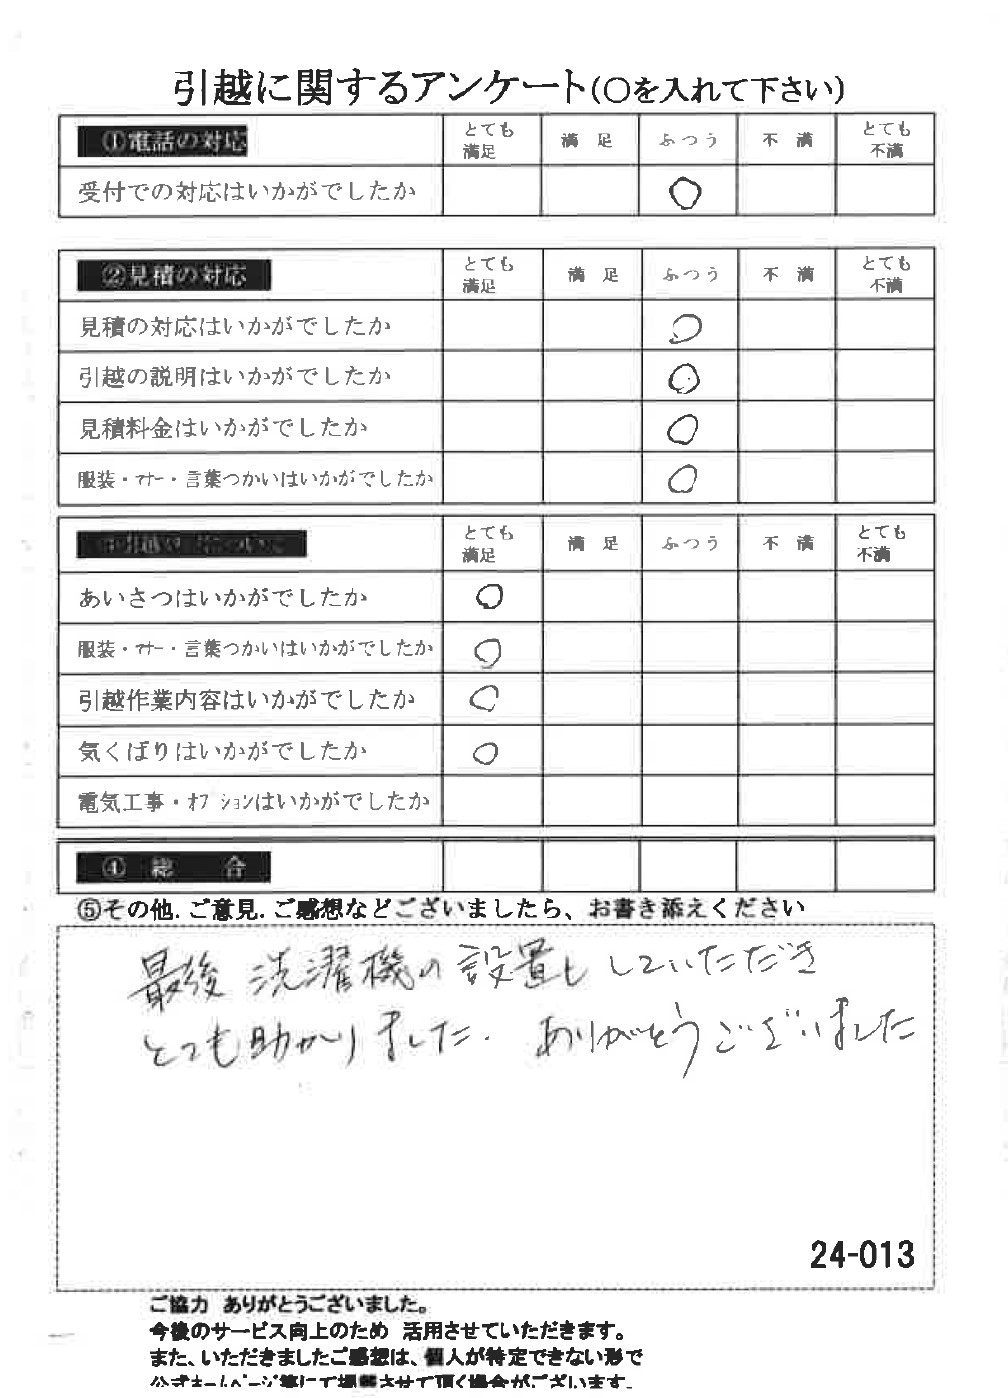 引越に関するアンケート(〇を入れて下さい)
①電話の対応 とても満足 満 足 ふつう 不 満 とても不満
受付での対応はいかがでしたか 〇
②見積の対応 とても満足 満 足 ふつう 不 満 とても不満
見積の対応はいかがでしたか 〇
引越の説明はいかがでしたか 〇
見積料金はいかがでしたか 〇
服装・マナー・言葉つかいはいかがでしたか 〇
とても満足 満 足 ふつう 不 満 とても不満
あいさつはいかがでしたか 〇
服装・マナー・言葉つかいはいかがでしたか 〇
引越作業内容はいかがでしたか 〇
気くばりはいかがでしたか 〇
電気工事・オプションはいかがでしたか
④ 総 合
⑤その他.ご意見.ご感想などございましたら、お書き添えください
最後 洗濯機の設置もしていただき
とても助かりました. ありがとうございました
24-013
ご協力 ありがとうございました。
今後のサービス向上のため 活用させていただきます。
また、いただきましたご感想は、個人が特定できない形で
公式ホームページ等にて掲載させて頂く場合がございます。